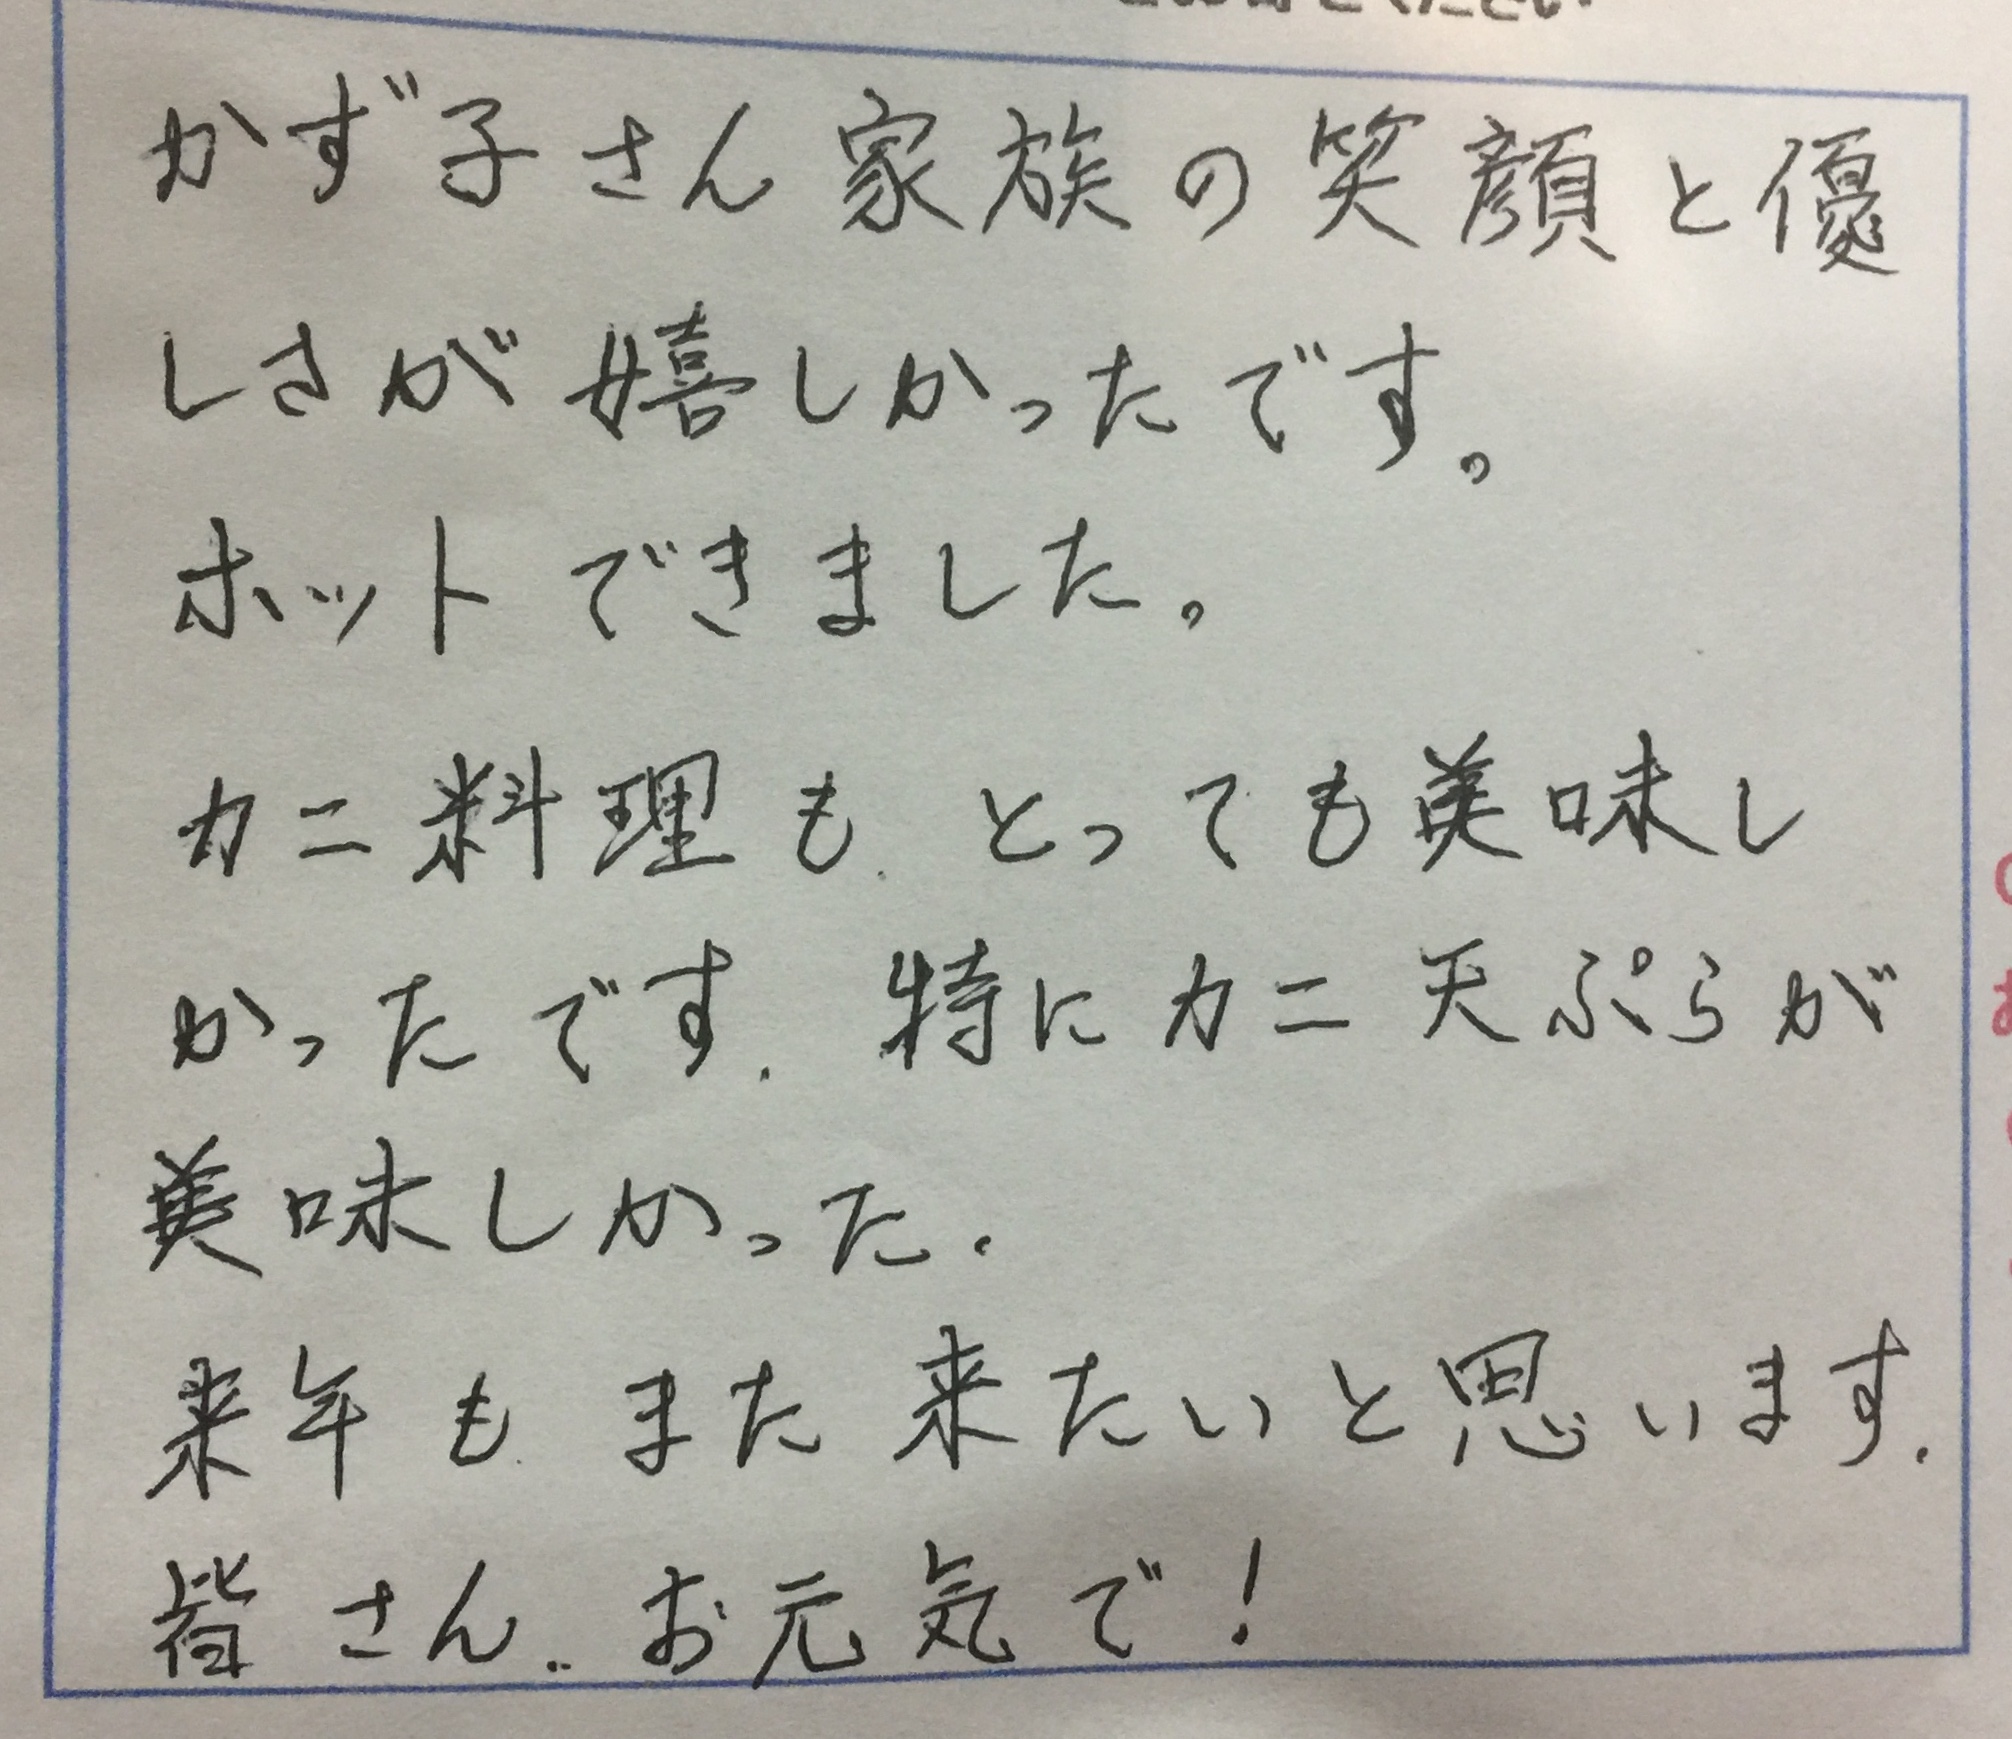 かず子さん家族の笑顔と優
しさが嬉しかったです。
ホットできました。
カニ料理も、とっても美味し
かったです。特にカニ天ぷらが
美味しかった。
来年も、また来たいと思います。
皆さん、お元気で!